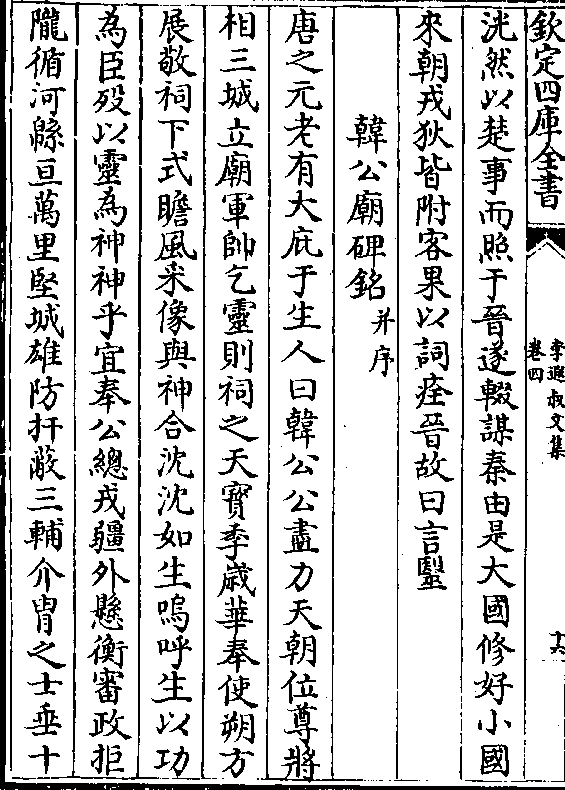 欽定四庫全書
李遐叔文集
卷四
十六
洸然以楚事而照于晉遂輟謀秦由是大國修好小國
來朝戎狄皆附客果以詞痊晉故曰言毉
韓公廟碑銘并序
唐之元老有大庇于生人曰韓公公盡力天朝位尊將
相三城立廟軍帥乞靈則祠之天寳季歲華奉使朔方
展敬祠下式瞻風采像與神合沈沈如生嗚呼生以功
為臣殁以靈為神神乎宜奉公總戎疆外懸衡審政拒
隴循河緜亘萬里堅城雄防扞蔽三輔介胄之士垂十